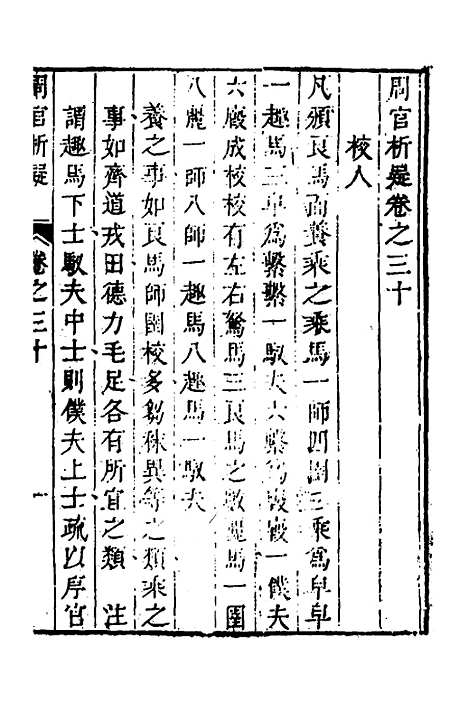 周官析疑卷之三十
校人
凡頒良馬而養乘之乘馬一師四圉三乘為皁皁
一趣馬三皁為繫繫一馭夫六繫為廄廄一僕夫
六廄成校校有左右駑馬三良馬之數麗馬一圉
八麗一師八師一趣馬八趣馬一馭夫
養之事如良馬師圉校多芻秣異等之類乘之
事如齊道戎田德力毛足各有所宜之類　注
謂趣馬下士馭夫中士則僕夫上士疏以序官
周官析疑　卷之三十　一